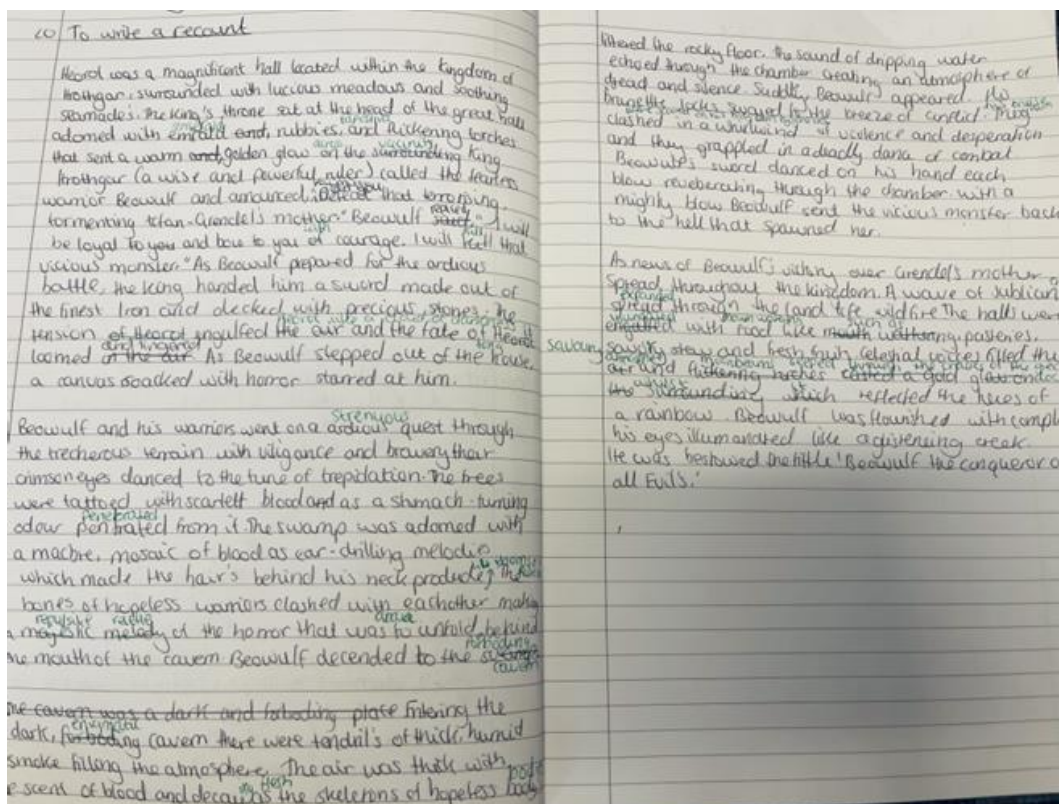 LO To write a recount
Heorot was a magnificent hall located within the kingdom of
Hrothgar, surrounded with lucious meadows and soothing
The king's throne sat at the head of the great hall
adorned with emrald and, rubbies, and flickering torches
that sent a warm and, golden glow on the surrounding King
Hrothgar (a wise and powerful ruler) called the fearless
warrior Beowulf and announced that terrorising,
tormenting titan-Grendel's mother." Beowulf I will
be loyal to you and bow to you of courage. I will kill that
vicious monster." As Beowulf prepared for the ardious
battle, the king handed him a sword made out of
the finest Iron and decked with precious stones, the
tension of Heorot engulfed the air and the fate of Heorot
loomed and lingered in the air As Beowulf stepped out of the house,
a canvas soacked with horror starred at him.
strenyous
Beowulf and his warriors went on a ardious quest through
the trecherous terrain with viligance and bravery their
crimson eyes danced to the tune of trepidation. The trees
were tattoed with scarlett blood and as a stumach-turning
penetrated
odour from it. The swamp was adorned with
a macbre, mosaic of blood as ear-drilling melodie
which made the hair's behind his neck produce, the
bones of hopeless warriors clashed with eachother making
repulsive
a majestic melody of the horror that was to unfold behind
forboding
the mouth of the cavern. Beowulf decended to the
cavern
the cavern was a dark and forboding place Entering the
enigmatic
dark, forboding cavern there were tendril's of thick, humid
smoke filling the atmosphere. The air was thick with
flesh
scent of blood and decay as the skeletons of hopeless body
littered the rocky floor. the sound of dripping water
echoed through the chamber creating an atmosphere of
dread and silence. Suddly, Beowulf appeared. His
brunette locks swayed to the breeze of conflict. They
clashed in a whirlwind of violence and desperation
and they grappled in a deadly dana of combat
Beowulf's sword danced on his hand each
blow reveberating through the chamber with a
mighty blow Beowulf sent the vicious monster back
to the hell that spawned her.
As news of Beowulf's victory over Grendel's mother
spread throughout the kingdom. A wave of
expanded
spread through the land life wildfire The halls were
with food like mouth wattering, pasteries,
savoury stew and fresh fruit celestial voices filled the
air and flickering torches casted a gold glow onto
the surrounding which reflected the hues of
a rainbow. Beowulf was flourished with
his eyes illumanated like a glistening creek
He was bestowed the tittle 'Beowulf the conqueror of
all Evils.'